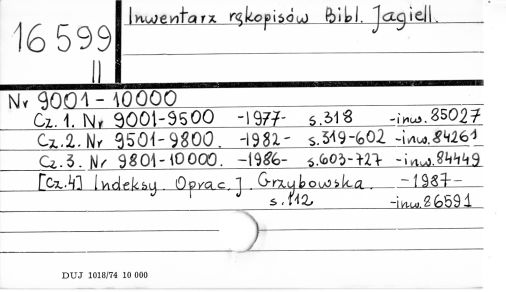 Inwentarz rękopisów Bibl. Jagiell.
16 599
II
Nr 9001-10000
Cz. 1. Nr 9001-9500 -1977- s.318 -inw. 85027
Cz. 2. Nr 9501-9800. -1982- s.319-602 -inw. 84261
Cz. 3. Nr 9801-10000. -1986- s.603-727 -inw. 84449
[Cz.4] Indeksy. Oprac. J. Grzybowska. -1987-
s.112 -inw. 86591
DUJ 1018/74 10 000